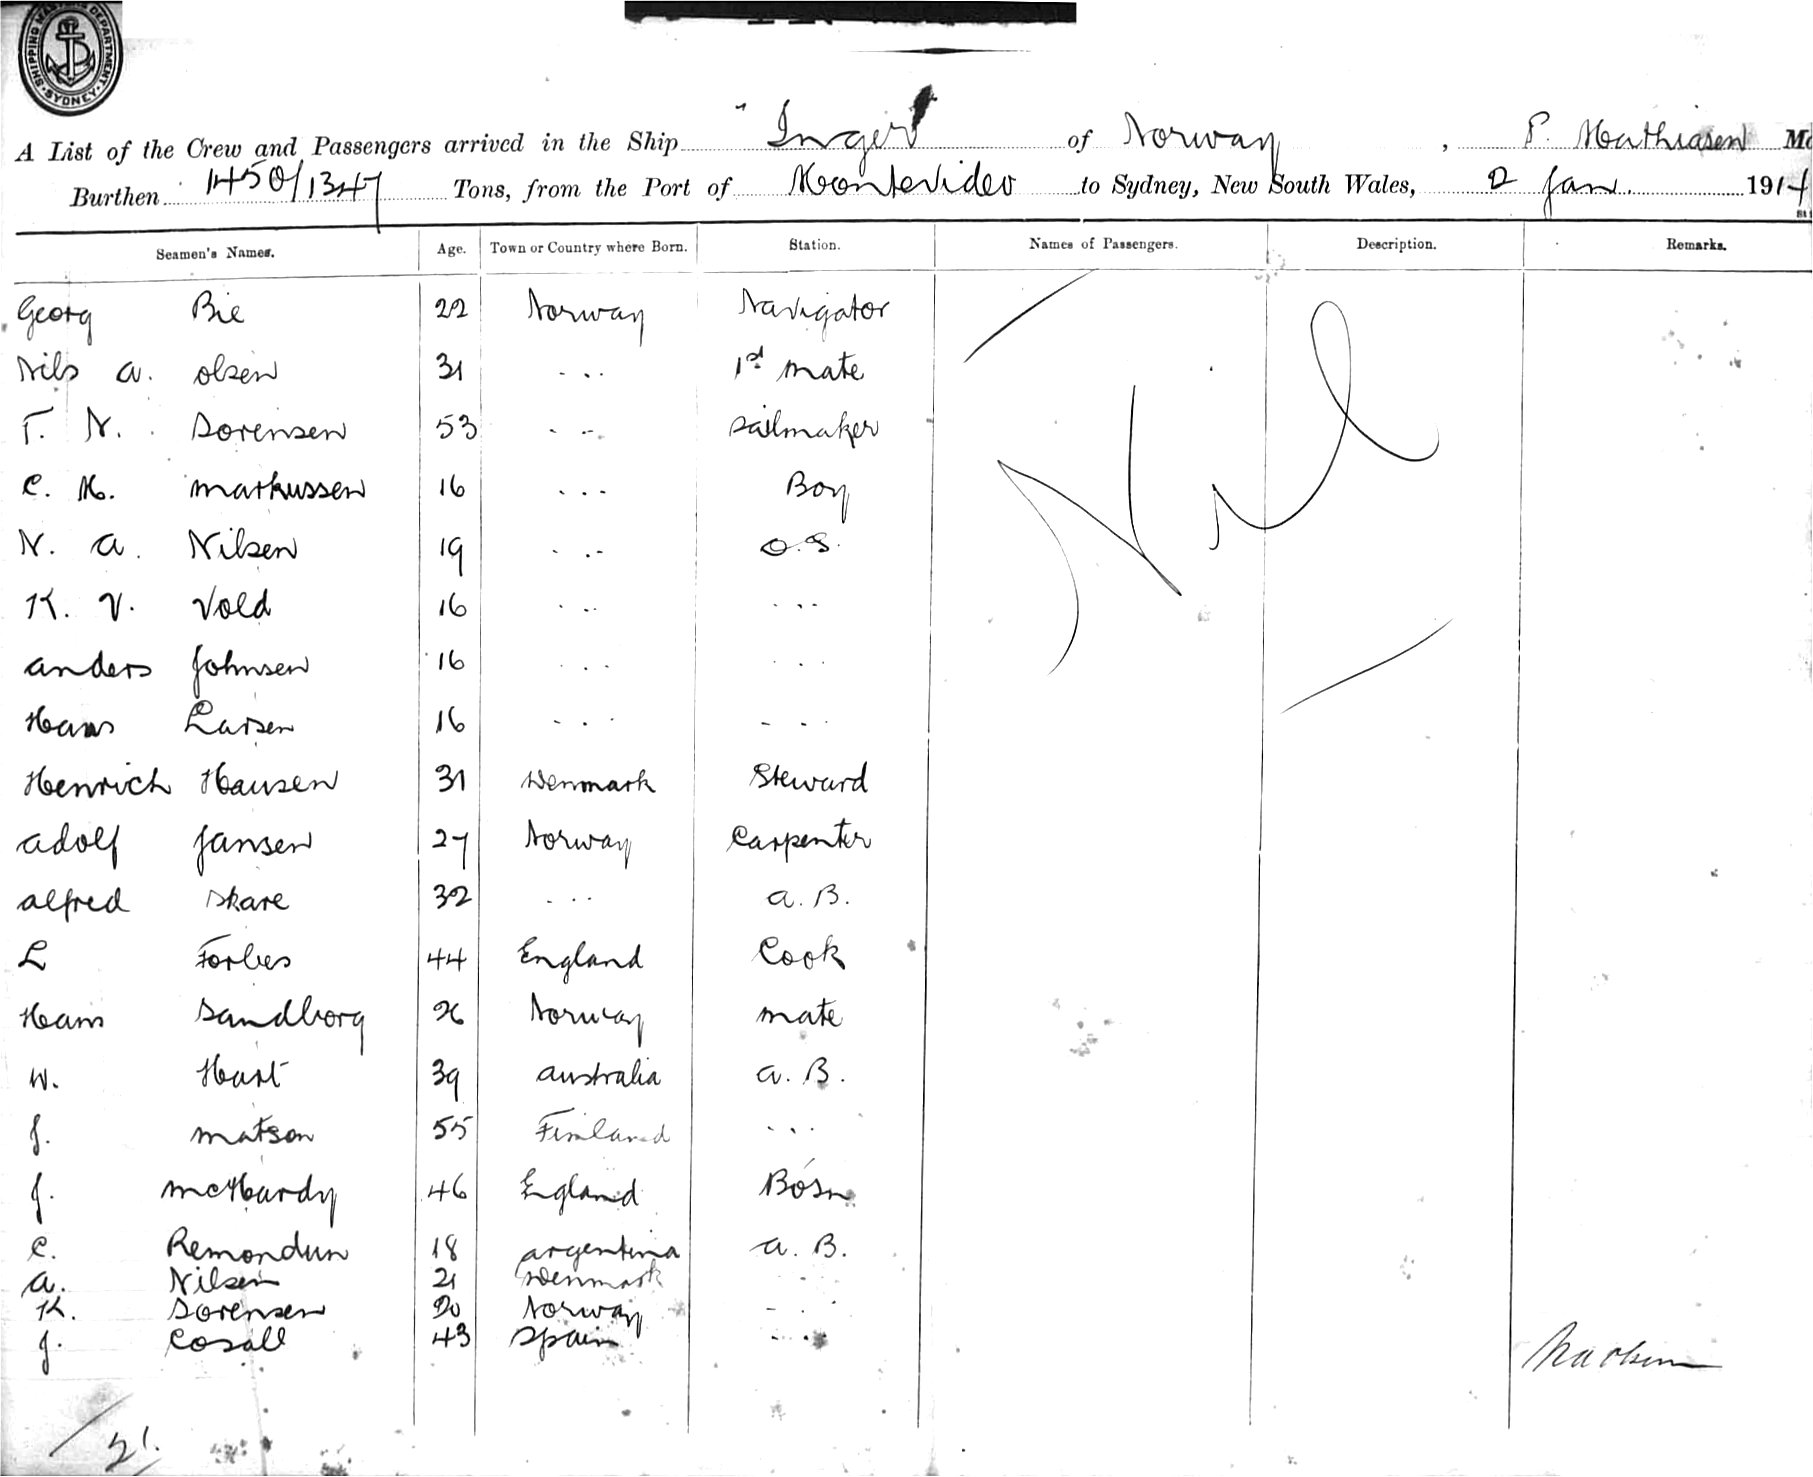 SHIPPING MASTERS DEPARTMENT. SYDNEY.
A List of the Crew and Passengers arrived in the Ship "Inger" of Norway, P. Mathiasen
Burthen 1450/1347 Tons, from the Port of Montevideo to Sydney, New South Wales, 2 Jan 1914
Seamen's Names. Age. Town or Country where Born. Station. Names of Passengers. Description. Remarks.
Georg Bie 22 Norway Navigator
Nils A. Olsen 31 ... 1st mate
T. N. Sorensen 53 ... Sailmaker
C. M. Markussen 16 ... Boy
N. A. Nilsen 19 ... O.S.
K. V. Vold 16 ... ...
Anders Johnsen 16 ... ...
Hans Larsen 16 ... ...
Henrich Hansen 31 Denmark Steward
Adolf Jansen 27 Norway Carpenter
Alfred Skare 32 ... A.B.
L Forbes 44 England Cook
Hans Sandborg 26 Norway mate
W. Hart 39 Australia A.B.
J. Matson 55 Finland ...
J. McHardy 46 England Bosn
C. Remondun 18 Argentina A.B.
A. Nilsen 21 Denmark ...
K. Sorensen 20 Norway ...
J. Cosall 43 Spain ...
Nil
21.